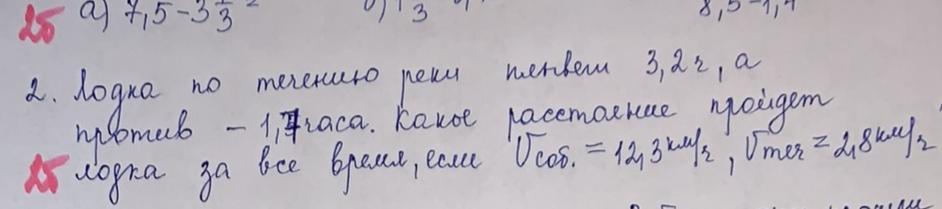 25 а) 7,5-3 1/3
8,5-1,4
2. Лодка по течению реки плывет 3,2 ч, а
против - 1,7 часа. Какое расстояние пройдет
25 лодка за все время, если Vсоб. = 12,3 км/ч, Vтеч = 2,8 км/ч